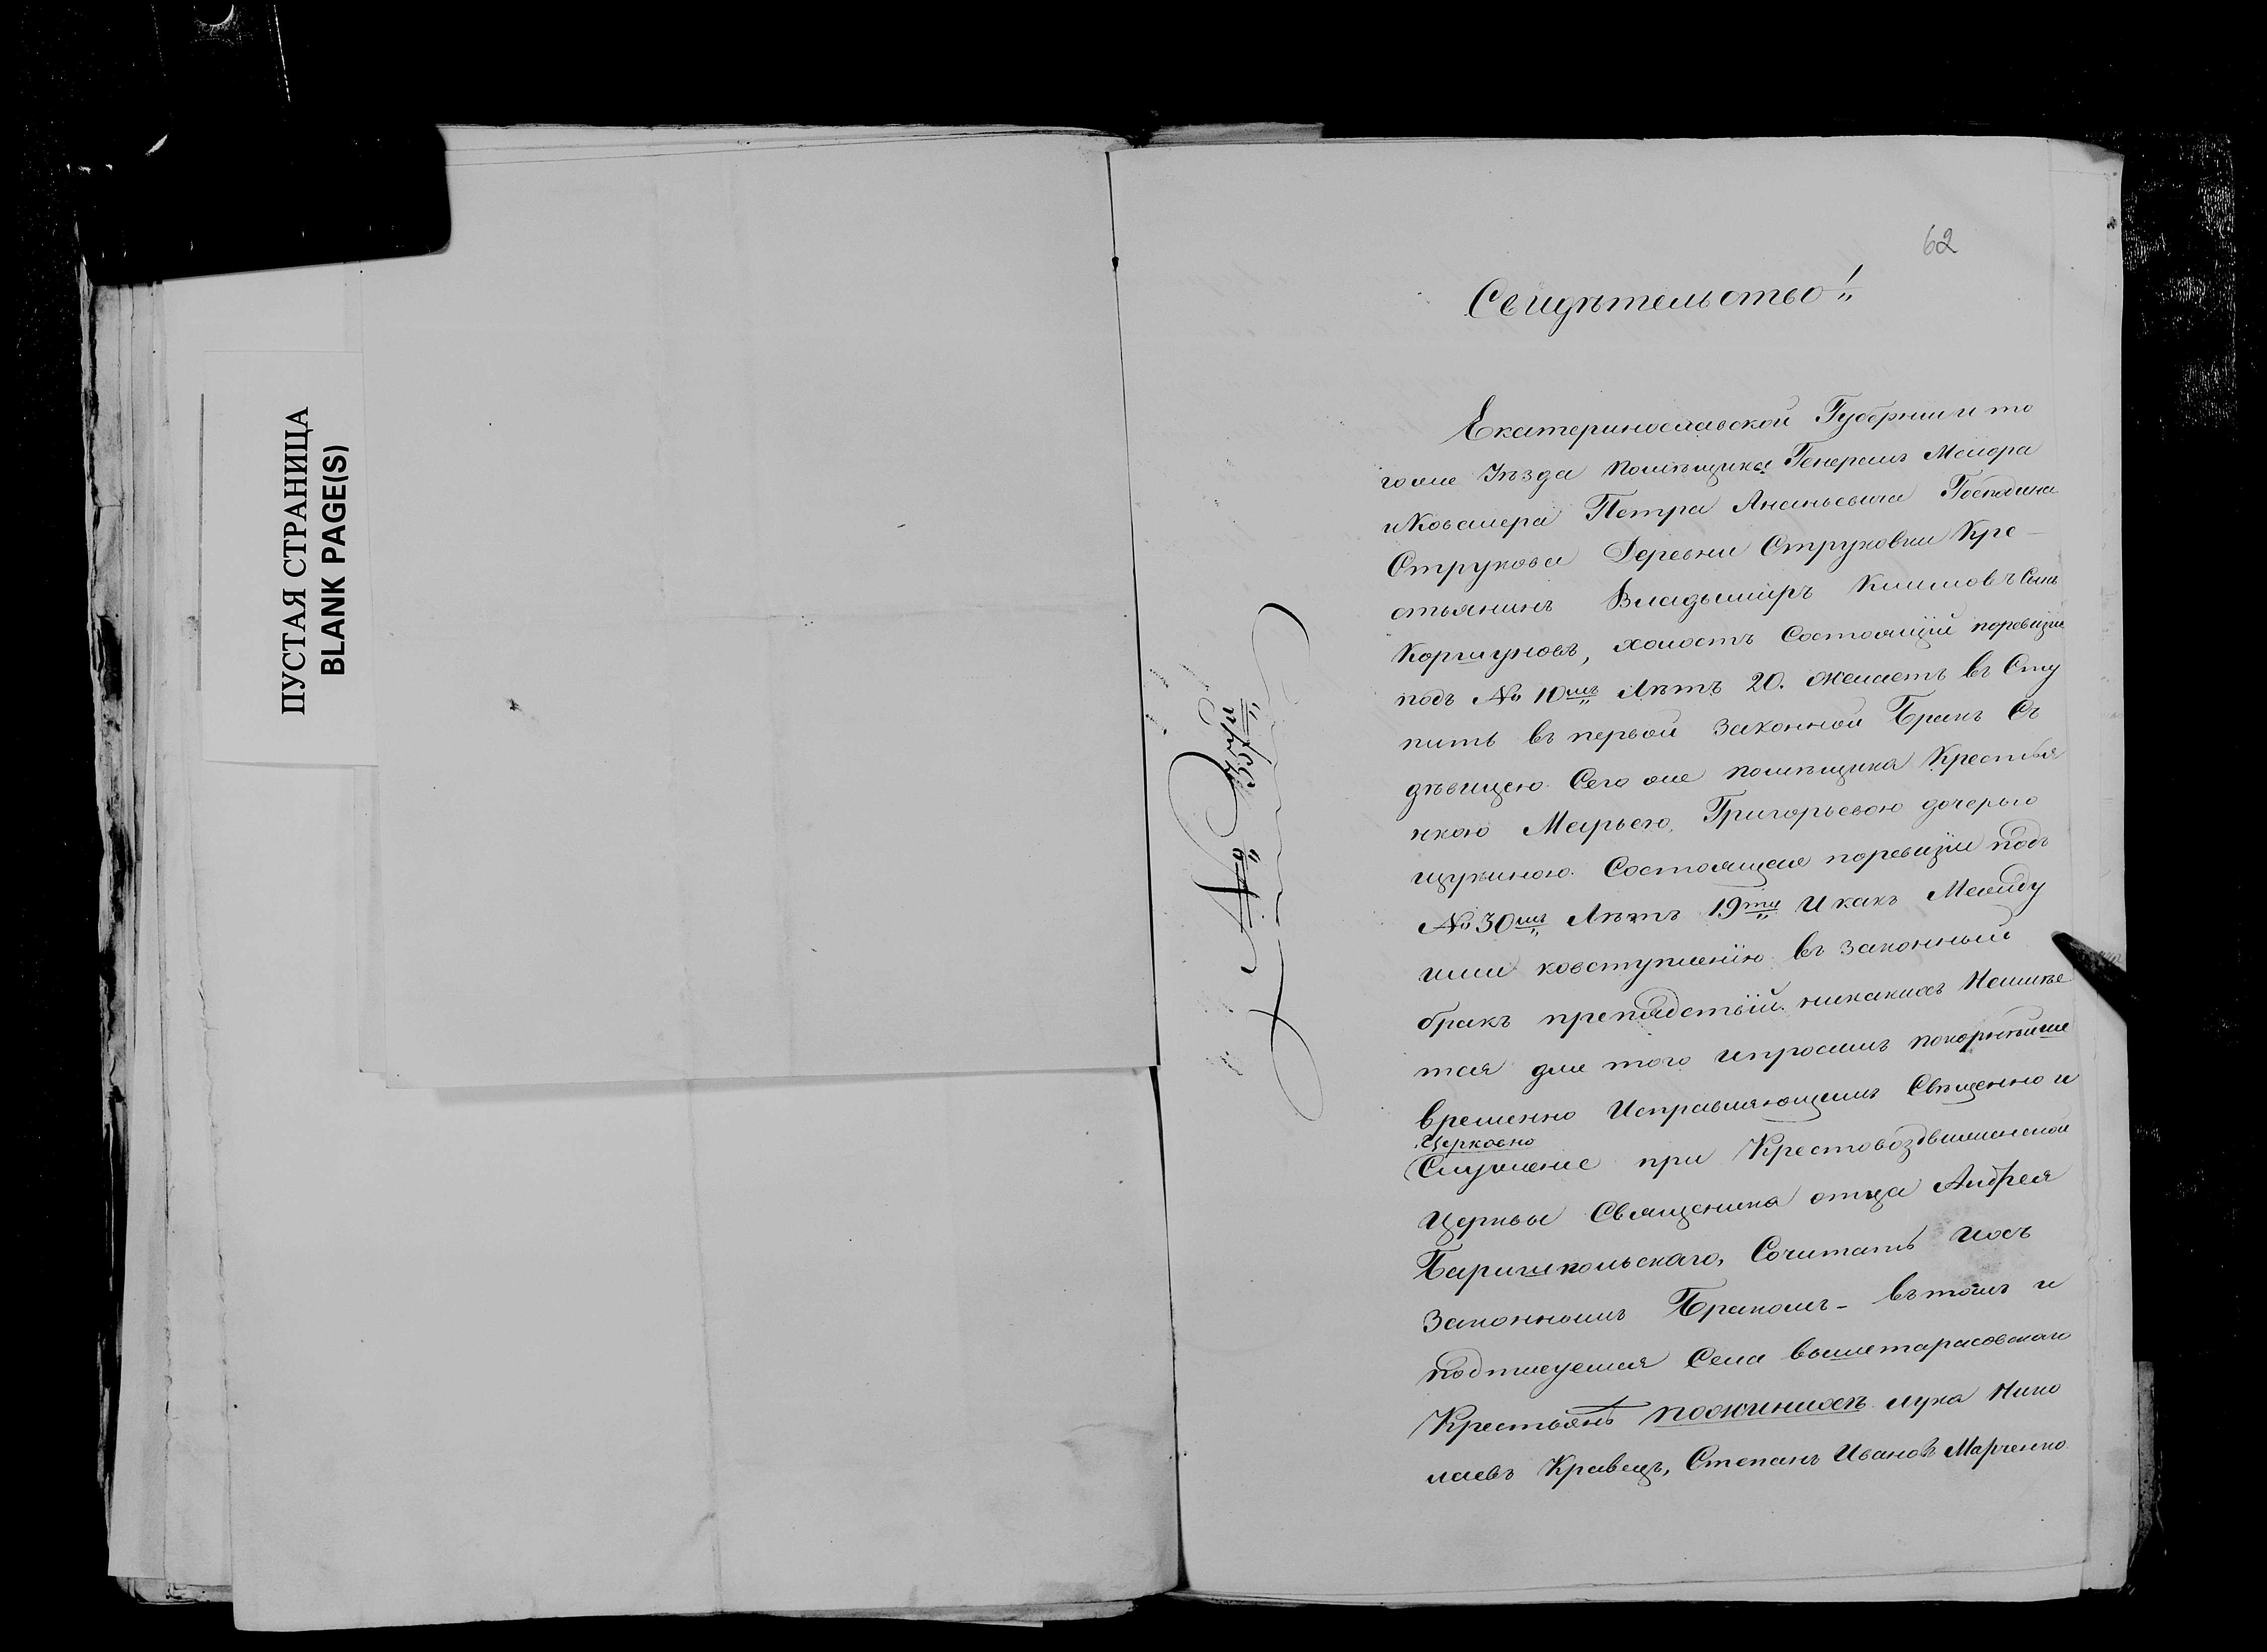 ПУСТАЯ СТРАНИЦА
BLANK PAGE(S)
62
Свидѣтельство!
Екатеринославской Губернии и то
гоже Уѣзда помѣщика Генералъ Маиора
и Ковалера Петра Ананьевича Господина
Струкова Деревни Струковки Кре-
стьянинъ Владымиръ Климовъ Сынъ
Коршуновъ, холостъ Состоящій поревизіи
подъ № 10мъ Лѣтъ 20. желаетъ въ Сту
пить въ первой Законной Бракъ Съ
дѣвицею Сего же помѣщика Крестья
нкою Марьею Григорьевою дочерью
щукиною. Состоящея поревизіи подъ
№ 30мъ Лѣтъ 19ти И какъ Между
ими ковступленію въ законный
бракъ препядствій никакихъ Неимѣе
тся для того и просимъ покорнѣише
временно Исправляющимъ Священно и
Церковно
Служеніе при Крестовоздвиженской
Церквы Священика отца Андрея
Баришпольскаго, Сочитать ихъ
Законнымъ Бракомъ - въ томъ и
подписуемся Села вышетарасовскаго
Крестьянъ лука Нико
лаевъ Кравецъ, Степанъ Ивановъ Марченко